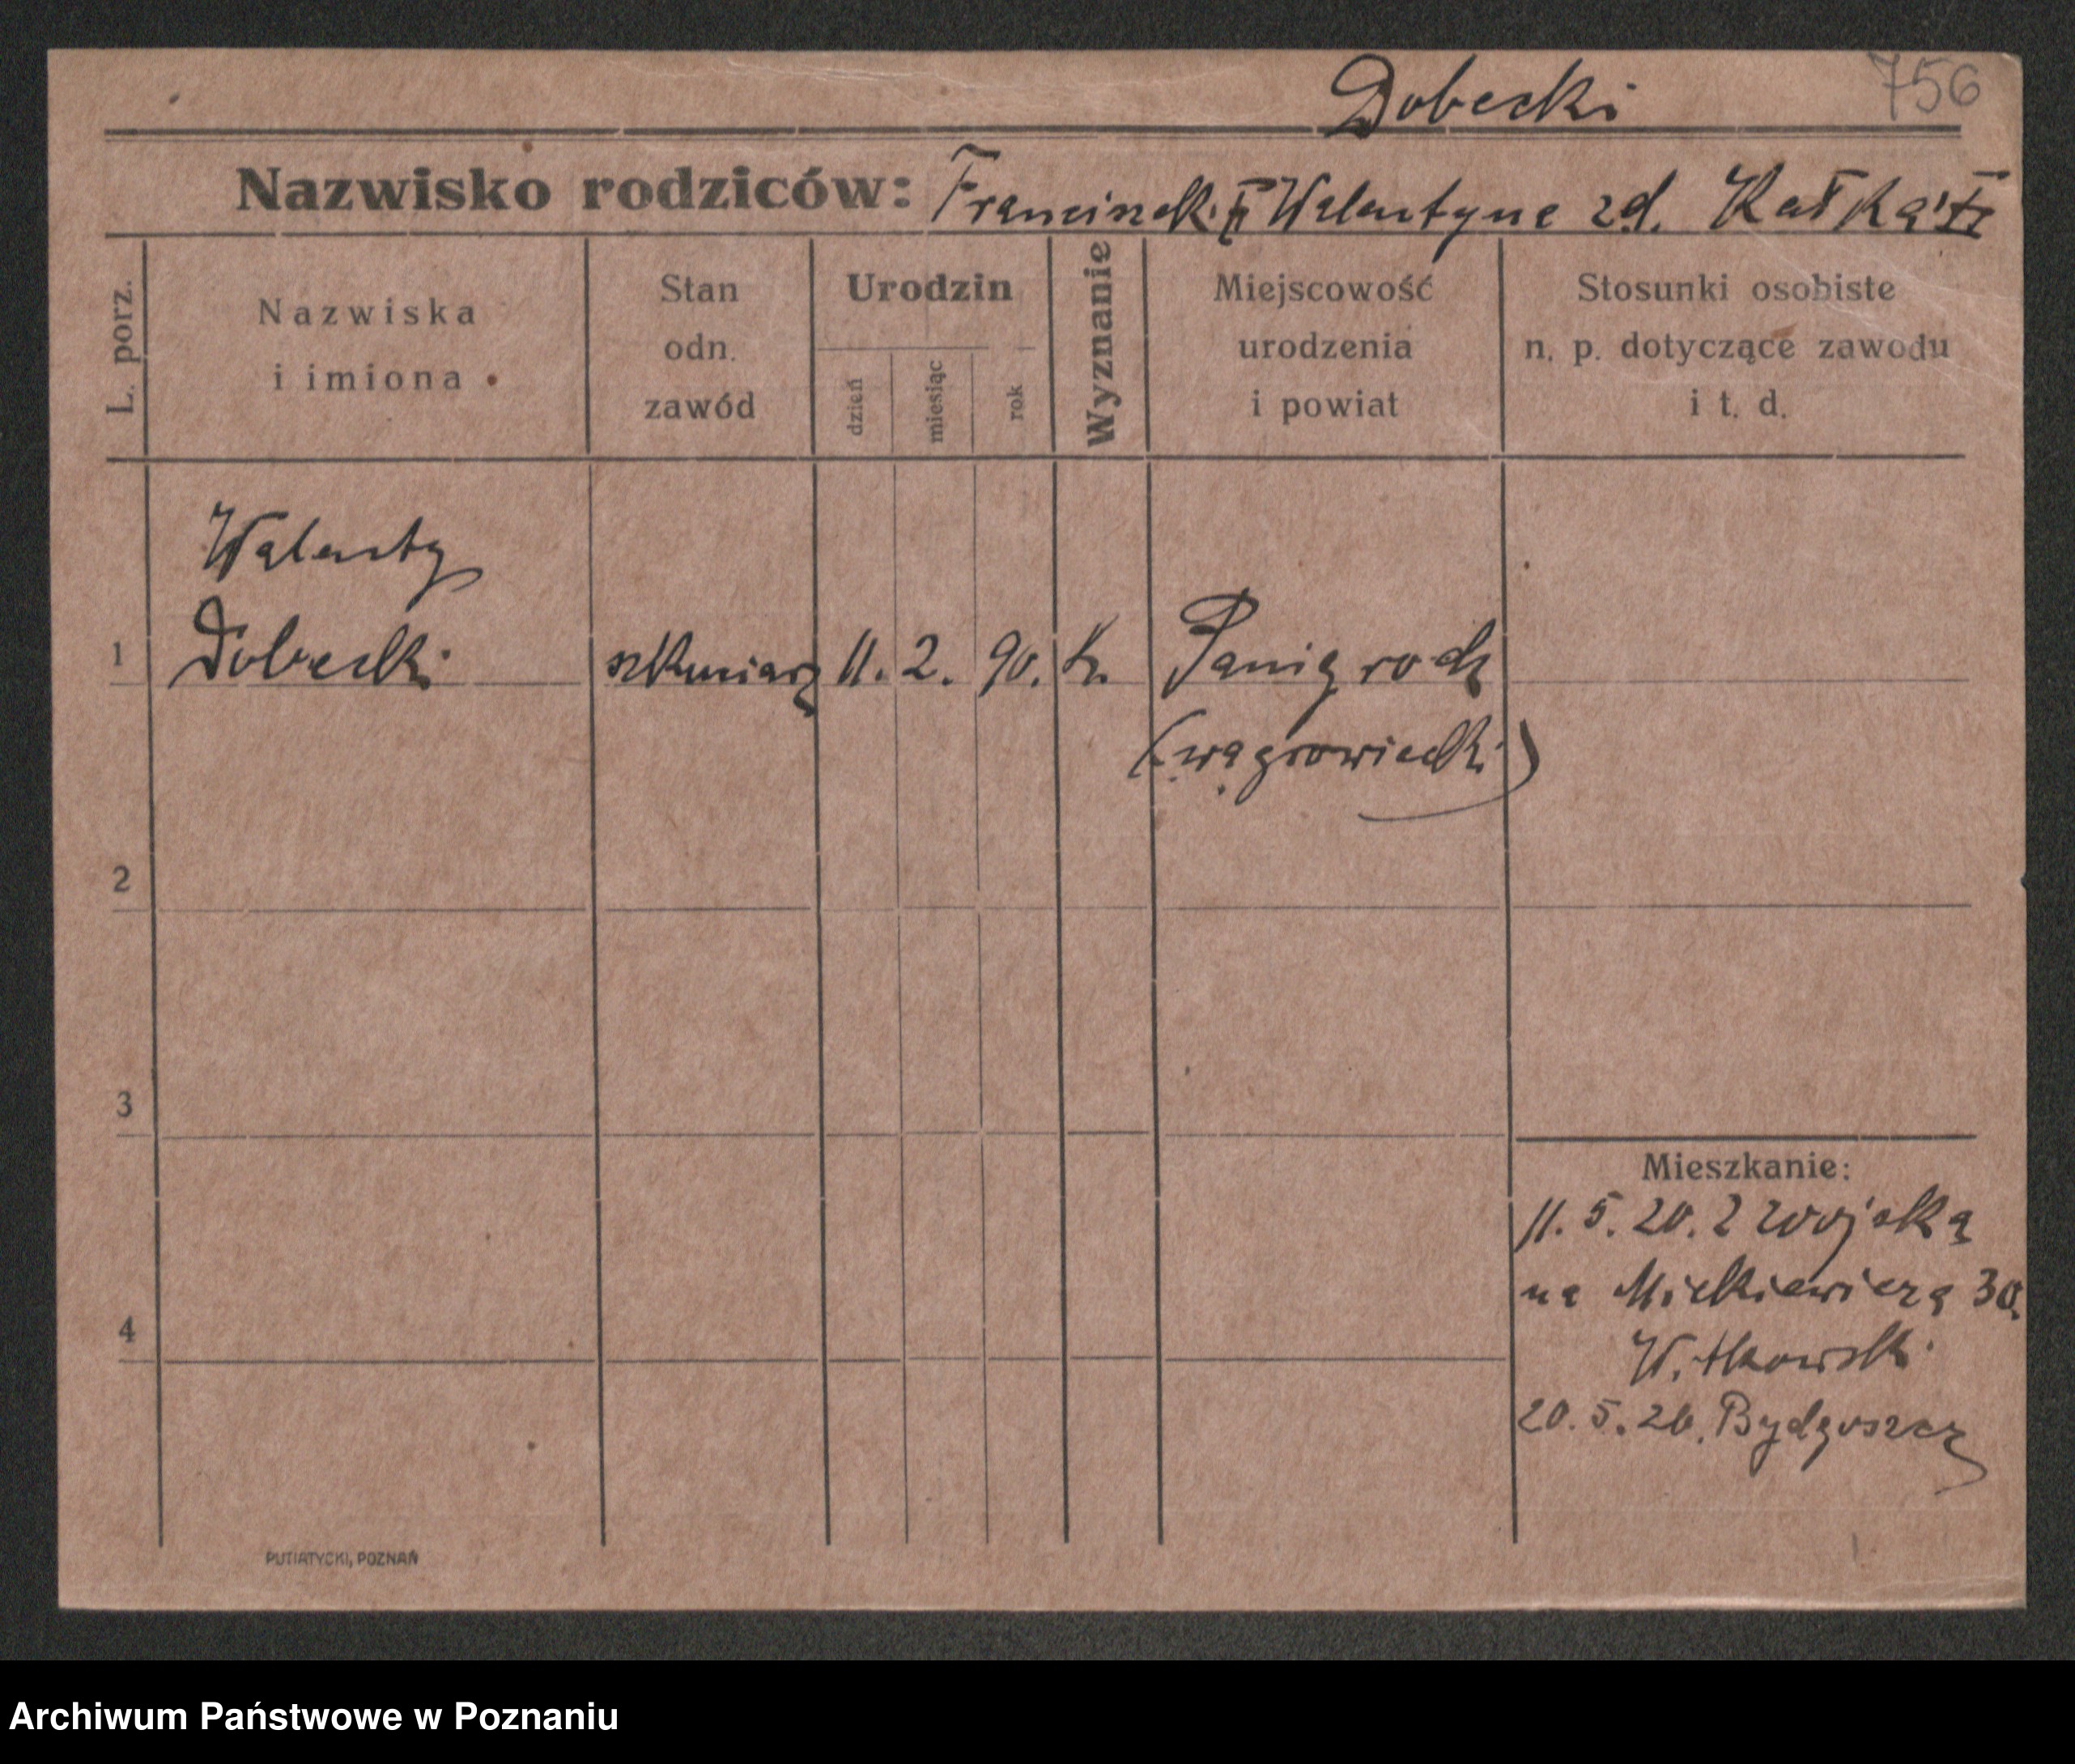 Dobecki 756
Nazwisko rodziców: Franciszek Walentyna zd.
L. porz.
Nazwiska
i imiona
Stan
odn.
zawód
Urodzin
dzień
miesiąc
rok
Wyznanie
Miejscowość
urodzenia
i powiat
Stosunki osobiste
n. p. dotyczące zawodu
i t. d.
Walenty
1 Dobecki 11. 2. 90. k. Panigródz
(wągrowiecki)
2
3
4
Mieszkanie:
11. 5. 20. z wojska
na Mickiewicza 30.
Witkowski
20. 5. 20. Bydgoszcz
PUTIATYCKI, POZNAŃ
Archiwum Państwowe w Poznaniu